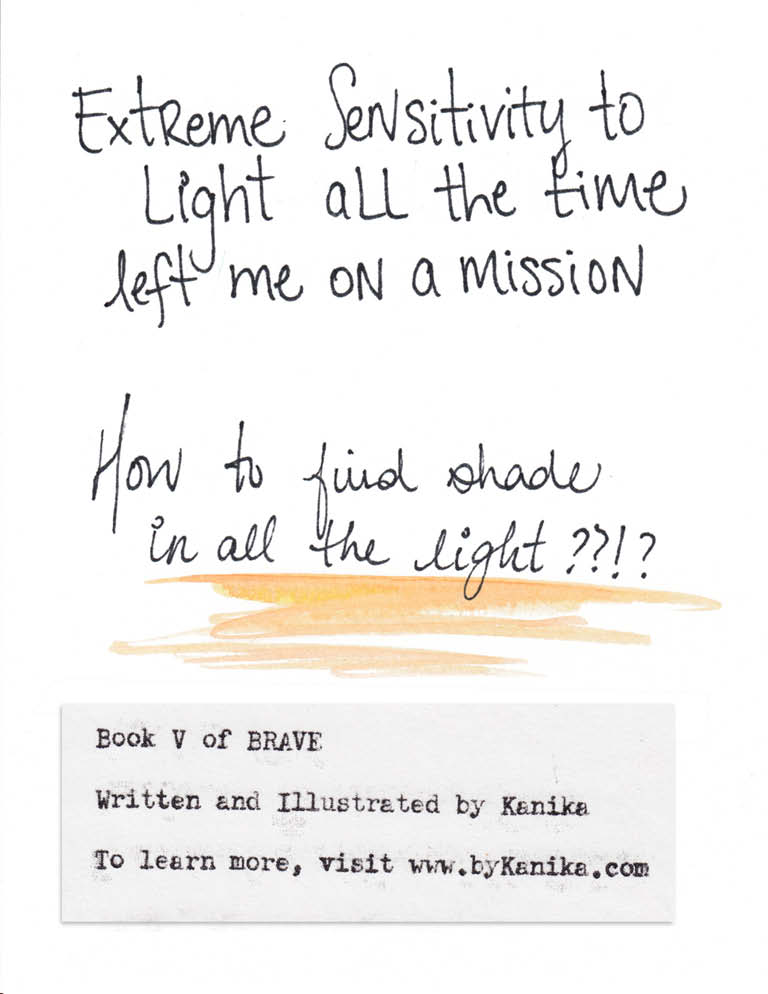 Extreme Sensitivity to
Light all the time
left me on a mission
How to find shade
in all the light ??!?
Book V of BRAVE
Written and Illustrated by Kanika
To learn more, visit www.byKanika.com